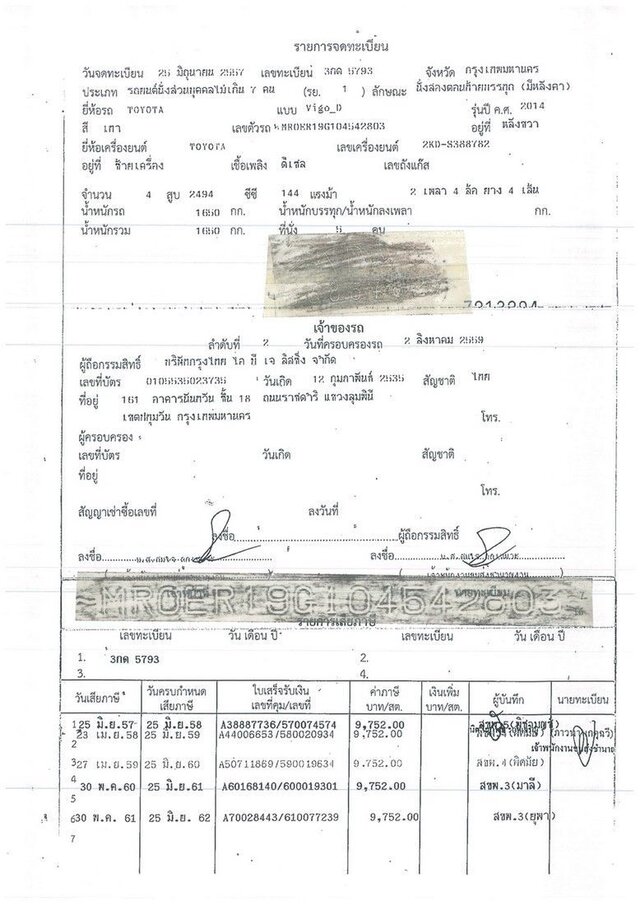 รายการจดทะเบียน
วันจดทะเบียน 25 มิถุนายน 2557 เลขทะเบียน 3กด 5793 จังหวัด กรุงเทพมหานคร
ประเภท รถยนต์นั่งส่วนบุคคลไม่เกิน 7 คน (รย. 1 ) ลักษณะ นั่งสองตอนท้ายบรรทุก (มีหลังคา)
ยี่ห้อรถ TOYOTA แบบ Vigo_D รุ่นปี ค.ศ. 2014
สี เทา เลขตัวรถ MROER19G104542803 อยู่ที่ หลังขวา
ยี่ห้อเครื่องยนต์ TOYOTA เลขเครื่องยนต์ 2KD-S388762
อยู่ที่ ซ้ายเครื่อง เชื้อเพลิง ดีเซล เลขถังแก๊ส
จำนวน 4 สูบ 2494 ซีซี 144 แรงม้า 2 เพลา 4 ล้อ ยาง 4 เส้น
น้ำหนักรถ 1650 กก. น้ำหนักบรรทุก/น้ำหนักลงเพลา กก.
น้ำหนักรวม 1650 กก. ที่นั่ง 5 คน
เจ้าของรถ
ลำดับที่ 2 วันที่ครอบครองรถ 2 สิงหาคม 2559
ผู้ถือกรรมสิทธิ์ บริษัทกรุงไทย ไอ บี เจ ลิสซิ่ง จำกัด
เลขที่บัตร 0105535023735 วันเกิด 12 กุมภาพันธ์ 2535 สัญชาติ ไทย
ที่อยู่ 161 ชั้น 18 ถนนราชดำริ แขวงลุมพินี
เขตปทุมวัน กรุงเทพมหานคร โทร.
ผู้ครอบครอง
เลขที่บัตร วันเกิด สัญชาติ
ที่อยู่
โทร.
สัญญาเช่าซื้อเลขที่ ลงวันที่
ลงชื่อ ผู้ถือกรรมสิทธิ์
ลงชื่อ ลงชื่อ
MROER19G104542803
รายการเสียภาษี
เลขทะเบียน วัน เดือน ปี เลขทะเบียน วัน เดือน ปี
1. 3กด 5793 2.
3. 4.
วันเสียภาษี วันครบกำหนดเสียภาษี ใบเสร็จรับเงิน เล่มที่คุม/เลขที่ ค่าภาษี บาท/สต. เงินเพิ่ม บาท/สต. ผู้บันทึก นายทะเบียน
1 25 มิ.ย.57 25 มิ.ย.58 A38887736/570074574 9,752.00
2 23 เม.ย.58 25 มิ.ย.59 A44006653/580020934 9,752.00
เจ้าพนักงานขนส่งชำนาญ
3 27 เม.ย.59 25 มิ.ย.60 A50711869/590019634 9,752.00 สขพ.4(พิดมัย)
4 30 พ.ค.60 25 มิ.ย.61 A60168140/600019301 9,752.00 สขพ.3(มาลี)
5
6 30 พ.ค. 61 25 มิ.ย. 62 A70028443/610077239 9,752.00 สขพ.3(ยุพา)
7